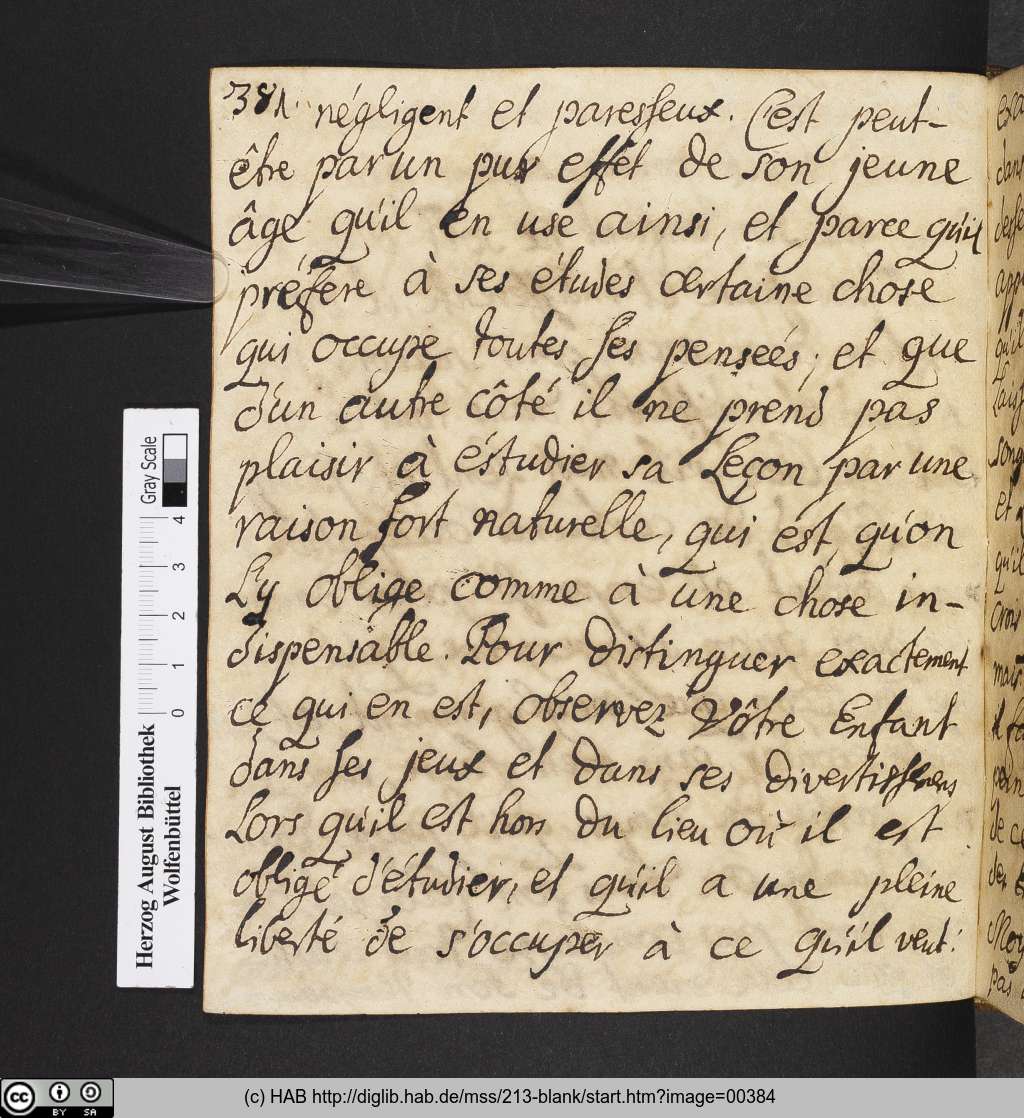 381. négligent et paresseux. C'est peut-
être par un pur effet de son jeune
âge qu'il en use ainsi, et parce qu'il
préfere à ses études certaine chose
qui occupe toutes ses penseés; et que
d'un autre côté il ne prend pas
plaisir à éstudier sa Leçon par une
raison fort naturelle, qui est, qu'on
L'y oblige comme à une chose in-
dispensable. Pour distinguer exactement
ce qui en est, observez Vôtre Enfant
dans ses jeux et dans ses
Lors qu'il est hors du lieu où il est
obligé d'étudier, et qu'il a une pleine
liberté de s'occuper à ce qu'il veut.
dans
appr
qu'il
Laiss
song
et
qu'il
crois
mais
de ce
des
pas
Gray Scale
0 1 2 3 4
Herzog August Bibliothek
Wolfenbüttel
cc BY SA
(c) HAB http://diglib.hab.de/mss/213-blank/start.htm?image=00384